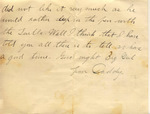 did not like it very much as he
would rather die in the for with
the I think that I have
told you all there is to tell so have
a good time. Good night Big Kid
Your Daddy